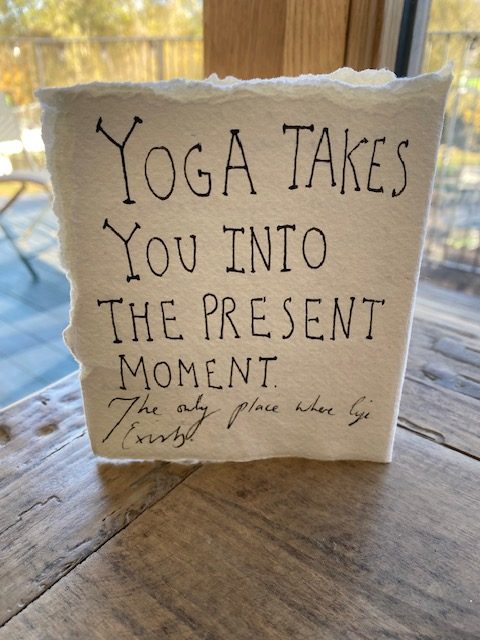 YOGA TAKES
YOU INTO
THE PRESENT
MOMENT.
The only place where life
Exists.